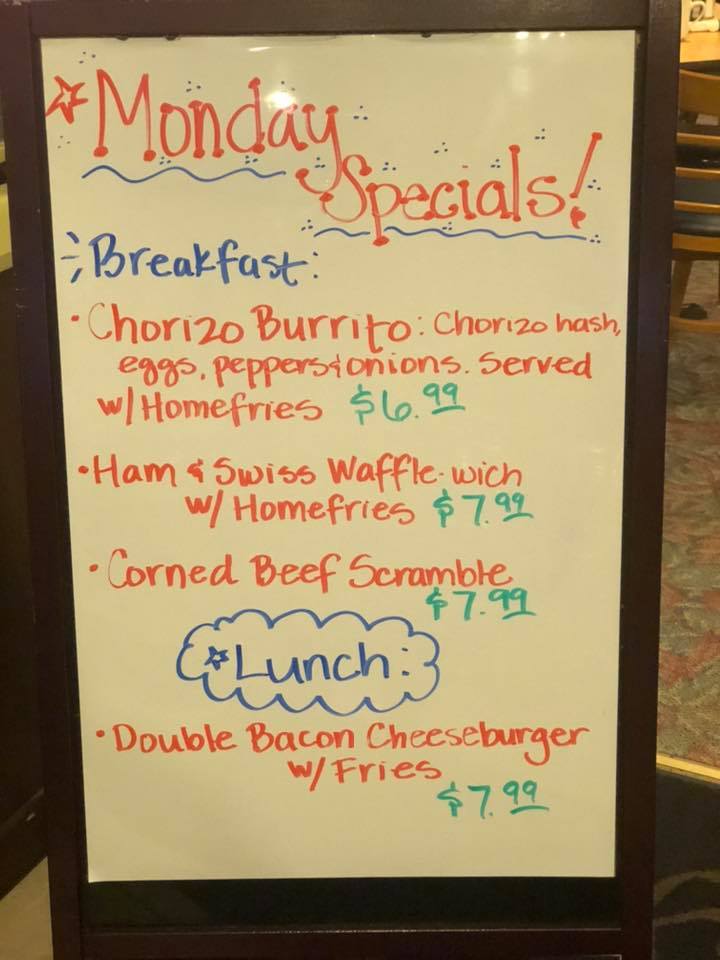 Monday
Specials!
Breakfast:
• Chorizo Burrito: Chorizo hash,
eggs, peppers & onions. Served
w/ Homefries $6.99
• Ham & Swiss Waffle-wich
w/ Homefries $7.99
• Corned Beef Scramble
$7.99
Lunch:
• Double Bacon Cheeseburger
w/ Fries
$7.99